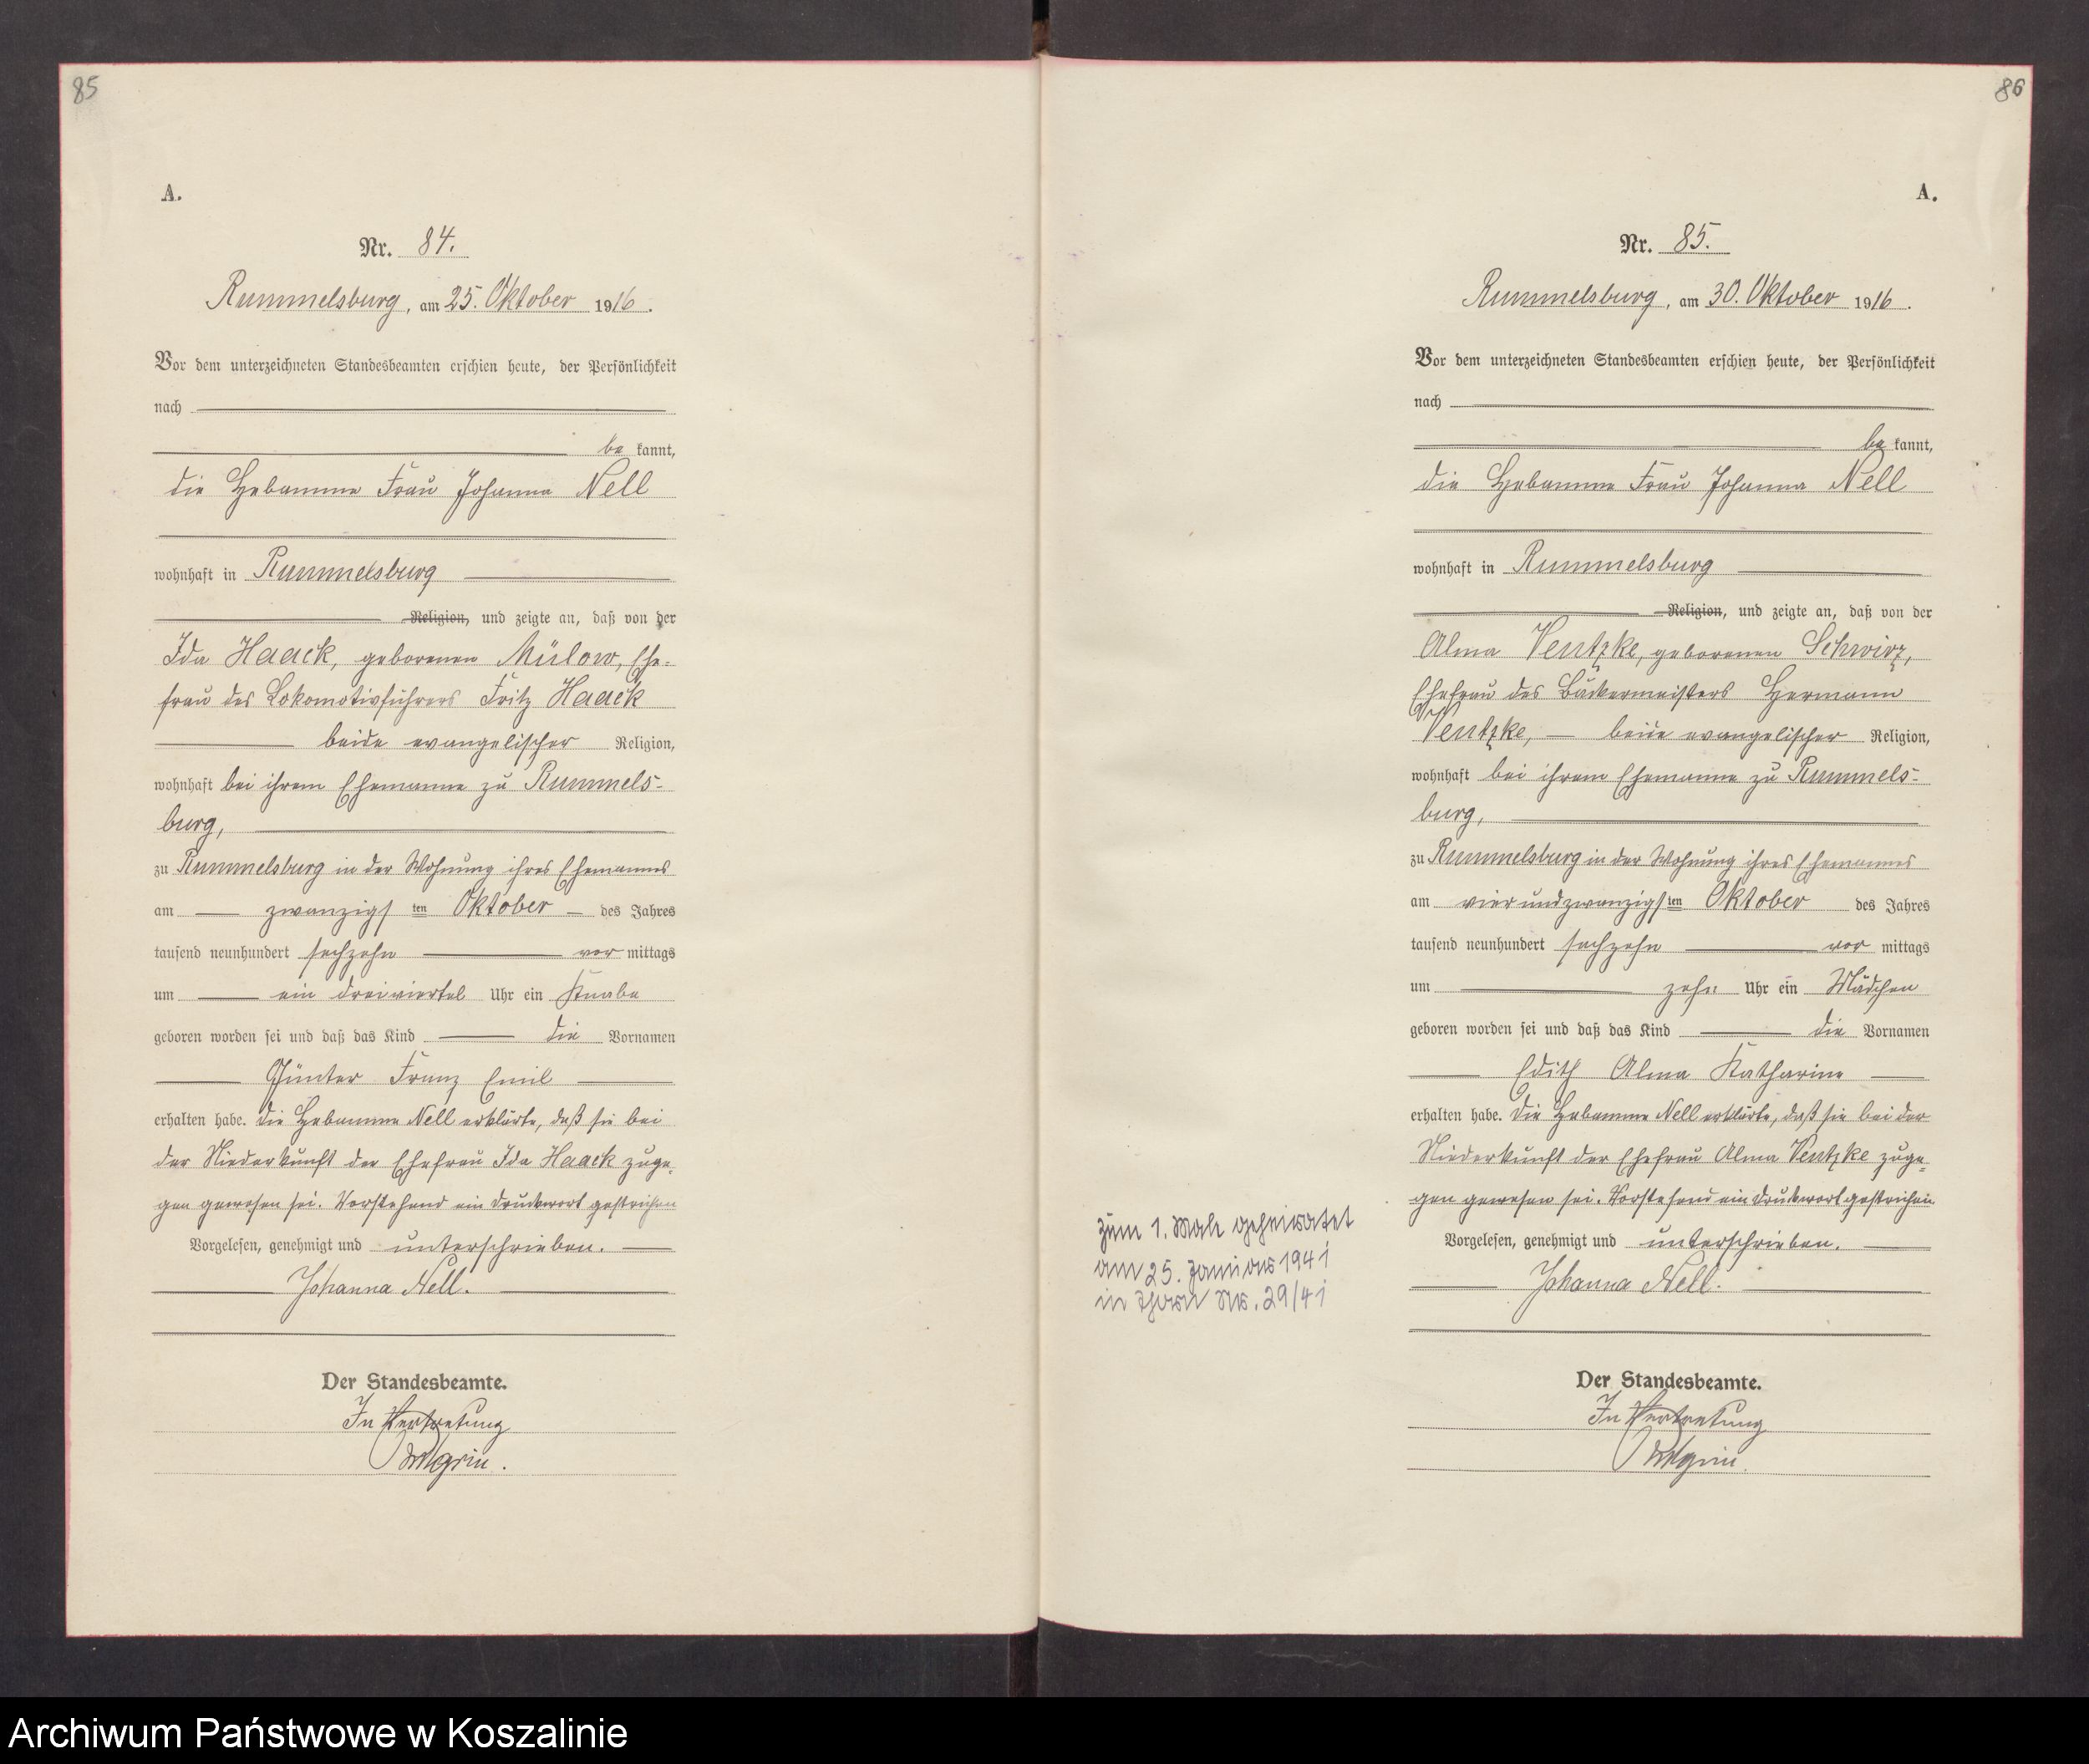 85
A.
Nr. 84.
Rummelsburg, am 25. Oktober 1916.
Vor dem unterzeichneten Standesbeamten erschien heute, der Persönlichkeit
nach
be kannt,
die Hebamme Frau Johanna Nell
wohnhaft in Rummelsburg
Religion, und zeigte an, daß von der
Ida Haack, geborenen Mülow, Ehe-
frau des Lokomotivführers Fritz Haack
beide evangelischer Religion,
wohnhaft bei ihrem Ehemanne zu Rummels-
burg,
zu Rummelsburg in der Wohnung ihres Ehemannes
am zwanzigsten Oktober des Jahres
tausend neunhundert sechzehn vor mittags
um ein dreiviertel Uhr ein Knabe
geboren worden sei und daß das Kind die Vornamen
Günter Franz Emil
erhalten habe. Die Hebamme Nell erklärte, daß sie bei
der Niederkunft der Ehefrau Ida Haack zuge-
gen gewesen sei. Vorstehend ein Druckwort gestrichen
Vorgelesen, genehmigt und unterschrieben.
Johanna Nell.
Der Standesbeamte.
In Vertretung
86
A.
Nr. 85.
Rummelsburg, am 30. Oktober 1916.
Vor dem unterzeichneten Standesbeamten erschien heute, der Persönlichkeit
nach
be kannt,
die Hebamme Frau Johanna Nell
wohnhaft in Rummelsburg
Religion, und zeigte an, daß von der
Alma Ventzke, geborenen Schwirz,
Ehefrau des Bäckermeisters Hermann
Ventzke, beide evangelischer Religion,
wohnhaft bei ihrem Ehemanne zu Rummels-
burg,
zu Rummelsburg in der Wohnung ihres Ehemannes
am vierundzwanzigsten Oktober des Jahres
tausend neunhundert sechzehn vor mittags
um zehn Uhr ein Mädchen
geboren worden sei und daß das Kind die Vornamen
Edith Alma Katharine
erhalten habe. Die Hebamme Nell erklärte, daß sie bei der
Niederkunft der Ehefrau Alma Ventzke zuge-
gen gewesen sei. Vorstehend ein Druckwort gestrichen.
Vorgelesen, genehmigt und unterschrieben.
Johanna Nell.
Der Standesbeamte.
In Vertretung
Zum 1. Male geheiratet
am 25. Januar 1941
in Thorn Nr. 29/41
Archiwum Państwowe w Koszalinie